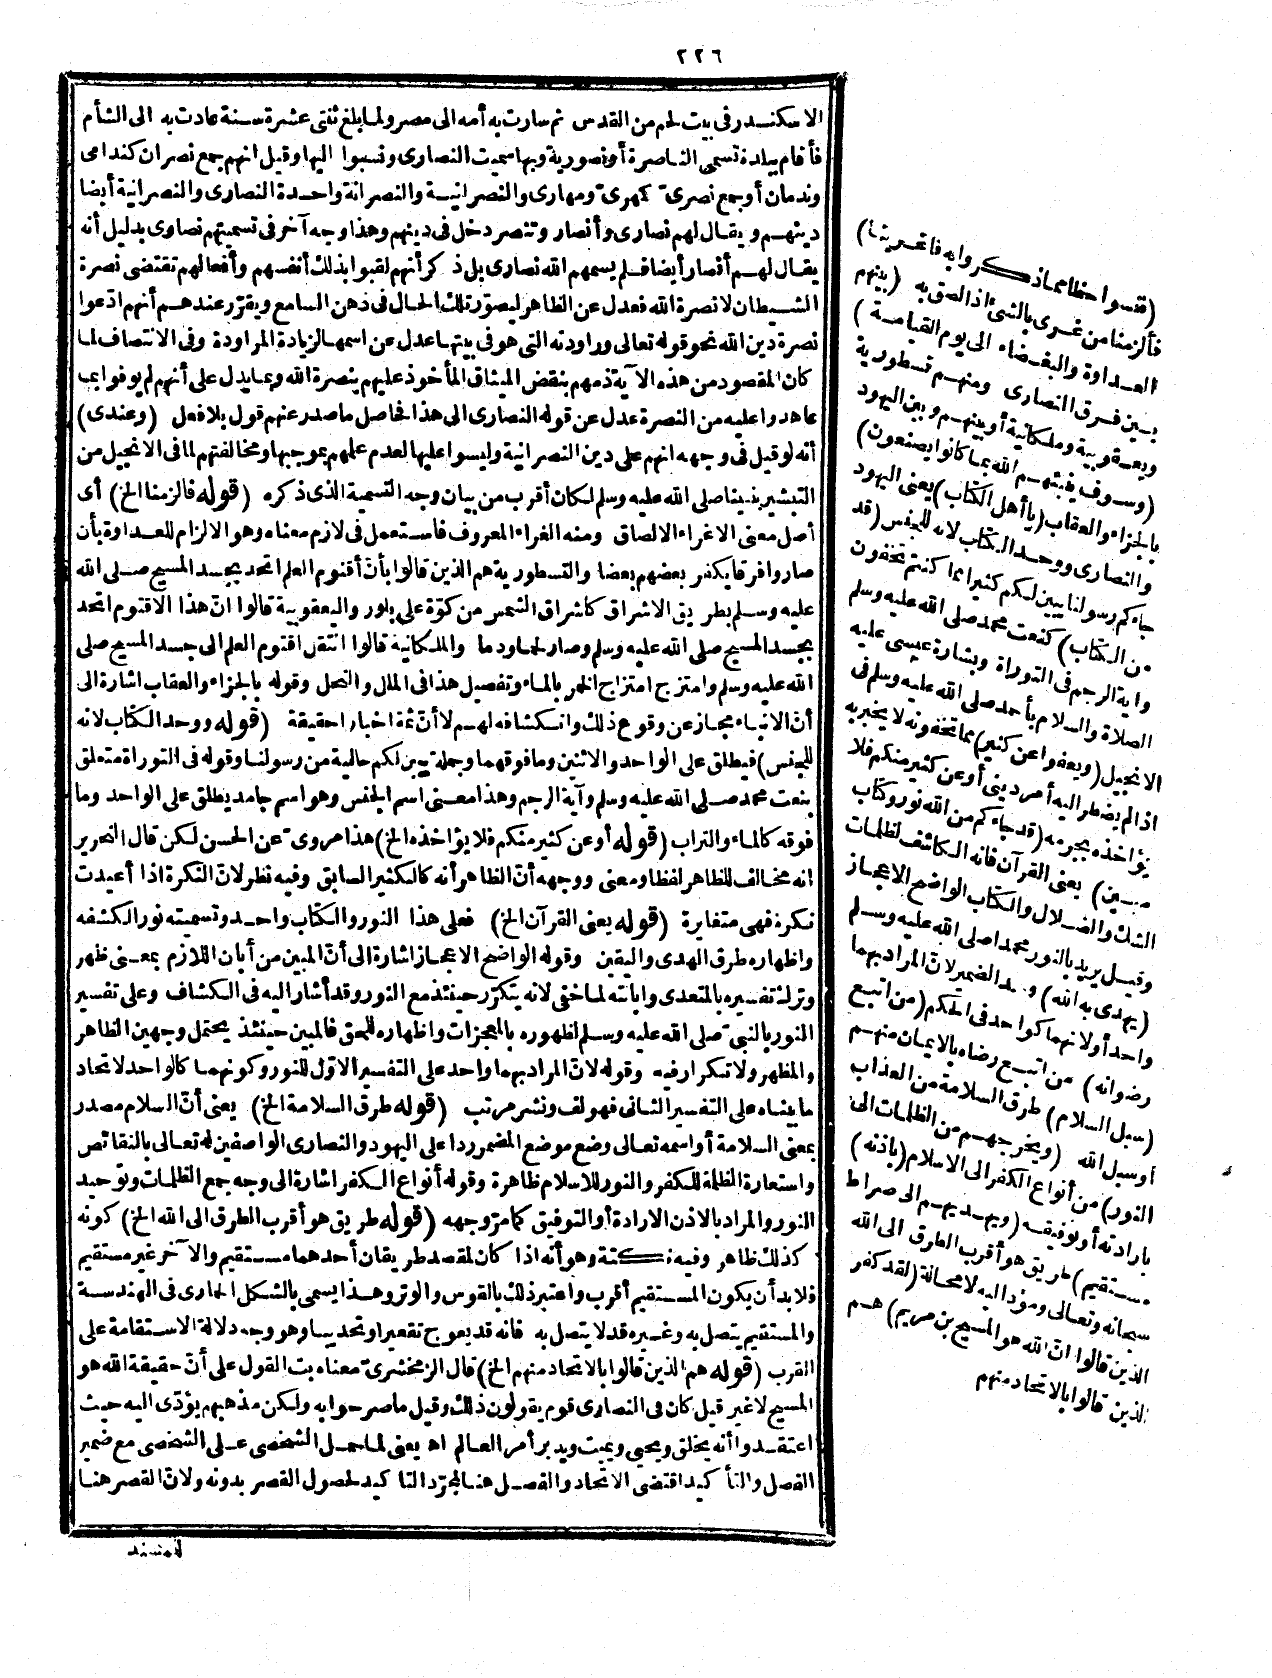 ٢٢٦
الاسكندر فى بيت لحم من القدس ثم سارت به أمه الى مصر ولما بلغ ثنتى عشرة سنة عادت به الى الشأم
فأقام ببلدة تسمى الناصرة أونصورية وبها سميت النصارى ونسبوا اليها وقيل انهم جمع نصران كندامى
وندمان أو جمع نصرىّ كمهرىّ ومهارى والنصرانية والنصرانة واحدة النصارى والنصرانية أيضا
دينهم و يقال لهم نصارى وأنصار وتنصر دخل فى دينهم وهذا وجه آخر فى تسميتهم نصاوى بدليل أنه
يقال لهم أنصار أيضا فلم يسمهم الله نصارى بل ذكر أنهم لقبوا بذلك أنفسهم وأفعالهم تقتضى نصرة
الشيطان لا نصرة الله فعدل عن الظاهر ليصوّر تلك الحال فى ذهن السامع ويقرّر عندهم أنهم ادّعوا
نصرة دين الله نحو قوله تعالى وراودته التى هو فى بيتها عدل عن اسمها لزيادة المراودة وفى الانتصاف لما
كان المقصود من هذه الآية ذمهم بنقض الميثاق المأخوذ عليهم بنصرة الله ومما يدل على أنهم لم يوفوا بما
عاهدوا عليه من النصرة عدل عن قوله النصارى الى هذا الحاصل ما صدر عنهم قول بلا فعل (وعندى)
أنه لو قيل فى وجهه انهم على دين النصرانية وليسوا عليها لعدم عملهم بموجبها ومخالفتهم لما فى الانجيل من
التبشير بنبينا صلى الله عليه وسلم لكان أقرب من بيان وجه التسمية الذى ذكره (قوله فالزمنا الخ) أى
أصل معنى الاغراء الالصاق ومنه الغراء المعروف فاستعمل فى لازم معناه وهو الالزام للعداوة بأن
صاروا فرقا يكفر بعضهم بعضا والنسطورية هم الذين قالوا بأنّ أقنوم العلم اتحد بجسد المسيح صلى الله
عليه وسلم بطريق الاشراق كاشراق الشمس من كوّة على بلور واليعقوبية قالوا انّ هذا الاقنوم اتحد
بجسد المسيح صلى الله عليه وسلم وصار لحما ودما والملكانية قالوا انتقل اقنوم العلم الى جسد المسيح صلى
الله عليه وسلم وامتزج امتزاج الخمر بالماء وتفصيل هذا فى الملل والنحل وقوله بالجزاء والعقاب اشارة الى
أنّ الانباء مجاز عن وقوع ذلك وانكشافه لهم لا أنّ ثمة اخبارا حقيقة (قوله ووحد الكتاب لانه
للجنس) فيطلق على الواحد والاثنين وما فوقهما وجملة يبين لكم حالية من رسولنا وقوله فى التوراة متعلق
بنعت محمد صلى الله عليه وسلم وآية الرجم وهذا معنى اسم الجنس وهو اسم جامد يطلق على الواحد وما
فوقه كالماء والتراب (قوله أو عن كثير منكم فلا يؤاخذه الخ) هذا مروىّ عن الحسن لكن قال النحرير
انه مخالف للظاهر لفظا ومعنى ووجهه أنّ الظاهر أنه كالكثير السابق وفيه نظر لانّ النكرة اذا أعيدت
نكرة فهى متغايرة (قوله يعنى القرآن الخ) فعلى هذا النور والكتاب واحد وتسميته نور الكشفه
واظهاره طرق الهدى واليقين وقوله الواضح الاعجاز اشارة الى أنّ المبين من أبان اللازم بمعنى ظهر
وترك تفسيره بالمتعدى وابانته لما خفى لانه يتكرّر حينئذ مع النور وقد أشار اليه فى الكشاف وعلى تفسير
النور بالنبىّ صلى الله عليه وسلم لظهوره بالمعجزات واظهاره للحق فالمبين حينئذ يحتمل وجهين الظاهر
والمظهر ولا تكرار فيه وقوله لانّ المراد بهما واحد على التفسير الاوّل للنور وكونهما كالواحد لاتحاد
ما بيناه على التفسير الثانى فهو لف ونشر مرتب (قوله طرق السلامة الخ) يعنى أنّ السلام مصدر
بمعنى السلامة أو اسمه تعالى وضع موضع المضمر ردا على اليهود والنصارى الواصفين له تعالى بالنقائص
واستعارة الظلمة للكفر والنور للاسلام ظاهرة وقوله أنواع الكفر اشارة الى وجه جمع الظلمات وتوحيد
النور والمراد بالاذن الارادة أو التوفيق كما مرّ وجهه (قوله طريق هو أقرب الطرق الى الله الخ) كونه
كذلك ظاهر وفيه نكتة وهو أنه اذا كان لمقصد طريقان أحدهما مستقيم والآخر غير مستقيم
فلا بد أن يكون المستقيم أقرب واعتبر ذلك بالقوس والوتر وهذا يسمى بالشكل الحارى فى الهندسة
والمستقيم يتصل به وغيره قد لا يتصل به فانه قد يعوج تقعيرا وتحديبا وهو وجه دلالة الاستقامة على
القرب (قوله هم الذين قالوا بالاتحاد منهم الخ) قال الزمخشرىّ معناه بت القول على أنّ حقيقة الله هو
المسيح لا غير قيل كان فى النصارى قوم يقولون ذلك وقيل ما صرحوا به ولكن مذهبهم يؤدّى اليه حيث
اعتقدوا أنه يخلق ويحيى ويميت ويدبر أمر العالم اه يعنى لما حمل الشخصى على الشخصى مع ضمير
الفصل والتأكيد اقتضى الاتحاد والفصل هنا لمجرّد التاكيد لحصول القصر بدونه ولانّ القصر هنا
(فنسوا حظا مما ذكروا به فاغرينا)
فألزمنا من غرى بالشئ اذا لصق به (بينهم
العداوة والبغضاء الى يوم القيامة)
بين فرق النصارى ومنهم نسطورية
ويعقوبية وملكانية أو بينهم وبين اليهود
(وسوف ينبئهم الله بما كانوا يصنعون)
بالجزاء والعقاب (يا أهل الكتاب) يعنى اليهود
والنصارى ووحد الكتاب لانه للجنس (قد
جاءكم رسولنا يبين لكم كثيرا مما كنتم تخفون
من الكتاب) كنعت محمد صلى الله عليه وسلم
واية الرجم فى التوراة وبشارة عيسى عليه
الصلاة والسلام بأحمد صلى الله عليه وسلم فى
الانجيل (ويعفوا عن كثير) مما تخفونه لا يخبر به
اذا لم يضطر اليه أمر دينى أو عن كثير منكم فلا
يؤاخذه بجرمه (قد جاءكم من الله نور وكتاب
مبين) يعنى القرآن فانه الكاشف لظلمات
الشك والضلال والكتاب الواضح الاعجاز
وقيل يريد بالنور محمدا صلى الله عليه وسلم
(يهدى به الله) وحد الضمير لانّ المراد بهما
واحد أو لانهما كواحد فى الحكم (من اتبع
رضوانه) من اتبع رضاه بالايمان منهم
(سبل السلام) طرق السلامة من العذاب
أو سبل الله (ويخرجهم من الظلمات الى
النور) من أنواع الكفر الى الاسلام (باذنه)
بارادته أو توفيقه (ويهديهم الى صراط
مستقيم) طريق هو أقرب الطرق الى الله
سبحانه وتعالى ومؤدّ اليه لا محالة (لقد كفر
الذين قالوا انّ الله هو المسيح بن مريم) هم
الذين قالوا بالاتحاد منهم